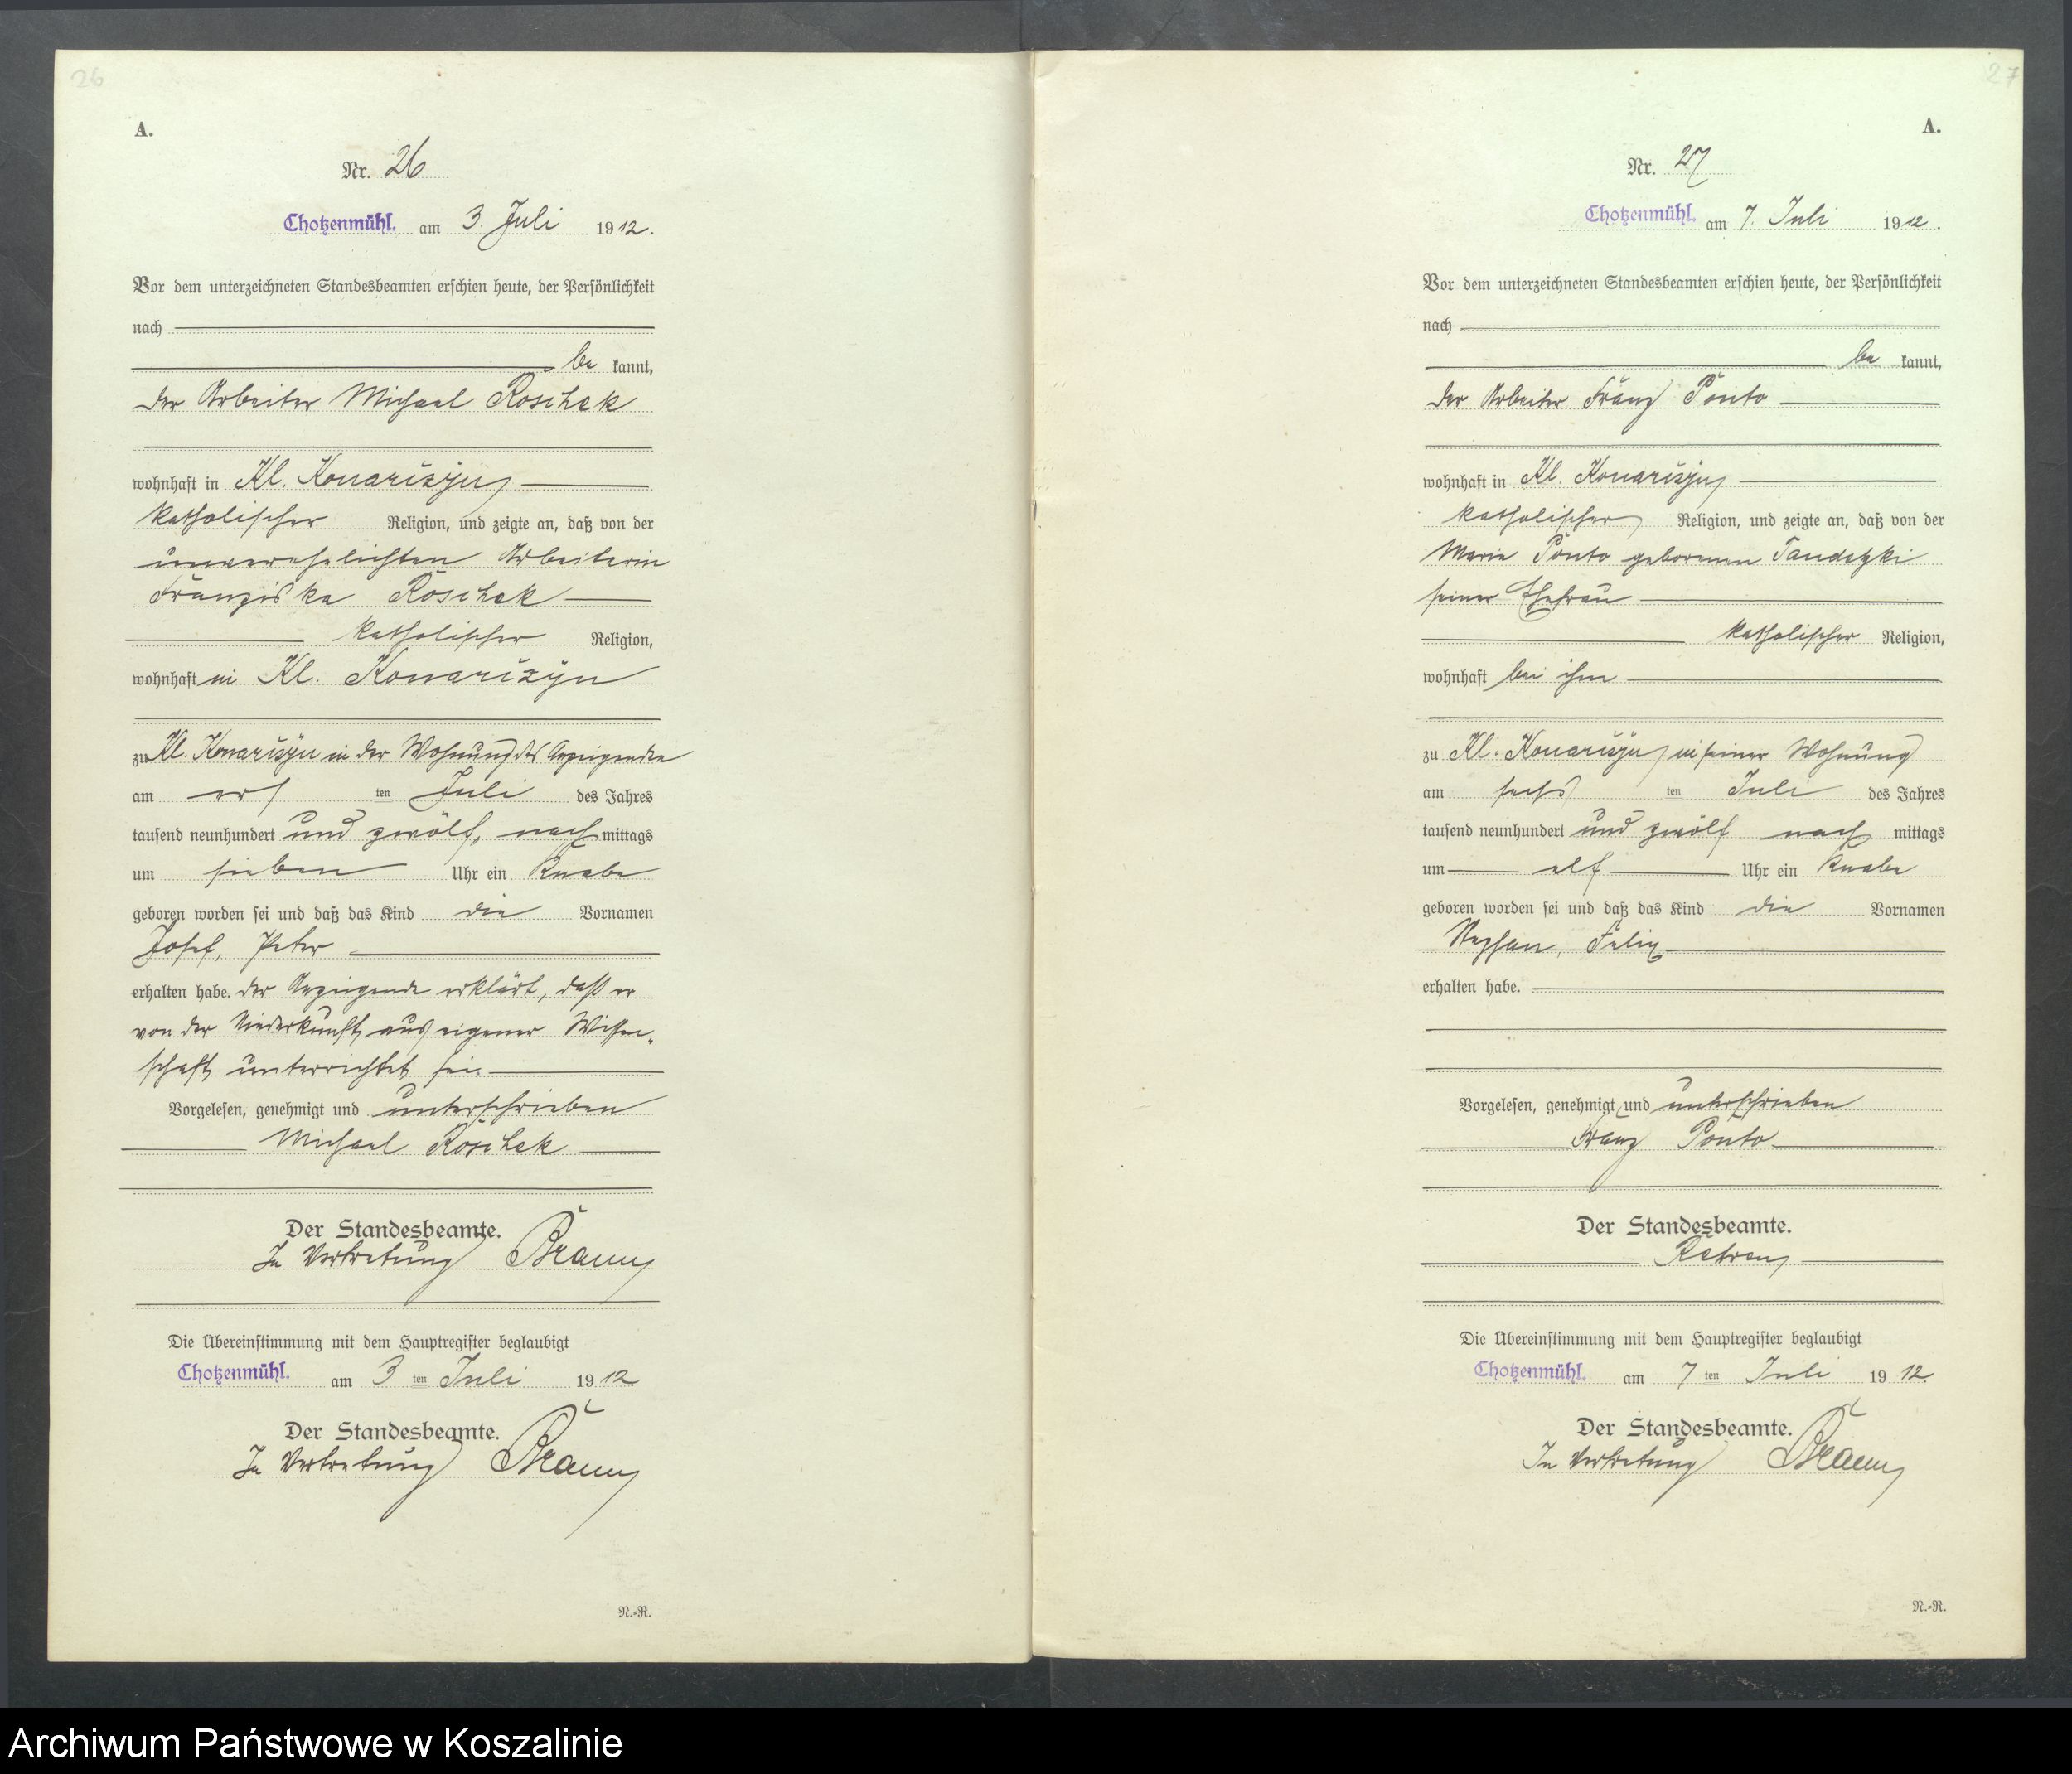 26
A.
Nr. 26
Chotzenmühl. am 3. Juli 1912.
Vor dem unterzeichneten Standesbeamten erschien heute, der Persönlichkeit
nach
be kannt,
der Arbeiter Michael Roschek
wohnhaft in Kl. Konarczyn
katholischer Religion, und zeigte an, daß von der
unverehelichten Arbeiterin
Franziska Roschek
katholischer Religion,
wohnhaft in Kl. Konarczyn
zu Kl. Konarczyn in der Wohnung des Anzeigenden
am ers ten Juli des Jahres
tausend neunhundert und zwölf, nach mittags
um sieben Uhr ein Knabe
geboren worden sei und daß das Kind die Vornamen
Josef, Peter
erhalten habe. Der Anzeigende erklärt, daß er
von der Niederkunft aus eigener Wissen-
schaft unterrichtet sei.
Vorgelesen, genehmigt und unterschrieben
Michael Roschek
Der Standesbeamte.
In Vertretung Braun
Die Übereinstimmung mit dem Hauptregister beglaubigt
Chotzenmühl. am 3 ten Juli 1912
Der Standesbeamte.
In Vertretung Braun
N.-R.
27
A.
Nr. 27
Chotzenmühl. am 7. Juli 1912.
Vor dem unterzeichneten Standesbeamten erschien heute, der Persönlichkeit
nach
be kannt,
der Arbeiter Franz Ponto
wohnhaft in Kl. Konarczyn
katholischer Religion, und zeigte an, daß von der
Maria Ponto geborenen Tandetzki
seiner Ehefrau
katholischer Religion,
wohnhaft bei ihm
zu Kl. Konarczyn in seiner Wohnung
am sechs ten Juli des Jahres
tausend neunhundert und zwölf nach mittags
um elf Uhr ein Knabe
geboren worden sei und daß das Kind die Vornamen
Felix
erhalten habe.
Vorgelesen, genehmigt und unterschrieben
Franz Ponto
Der Standesbeamte.
Die Übereinstimmung mit dem Hauptregister beglaubigt
Chotzenmühl. am 7 ten Juli 1912.
Der Standesbeamte.
In Vertretung Braun
N.-R.
Archiwum Państwowe w Koszalinie